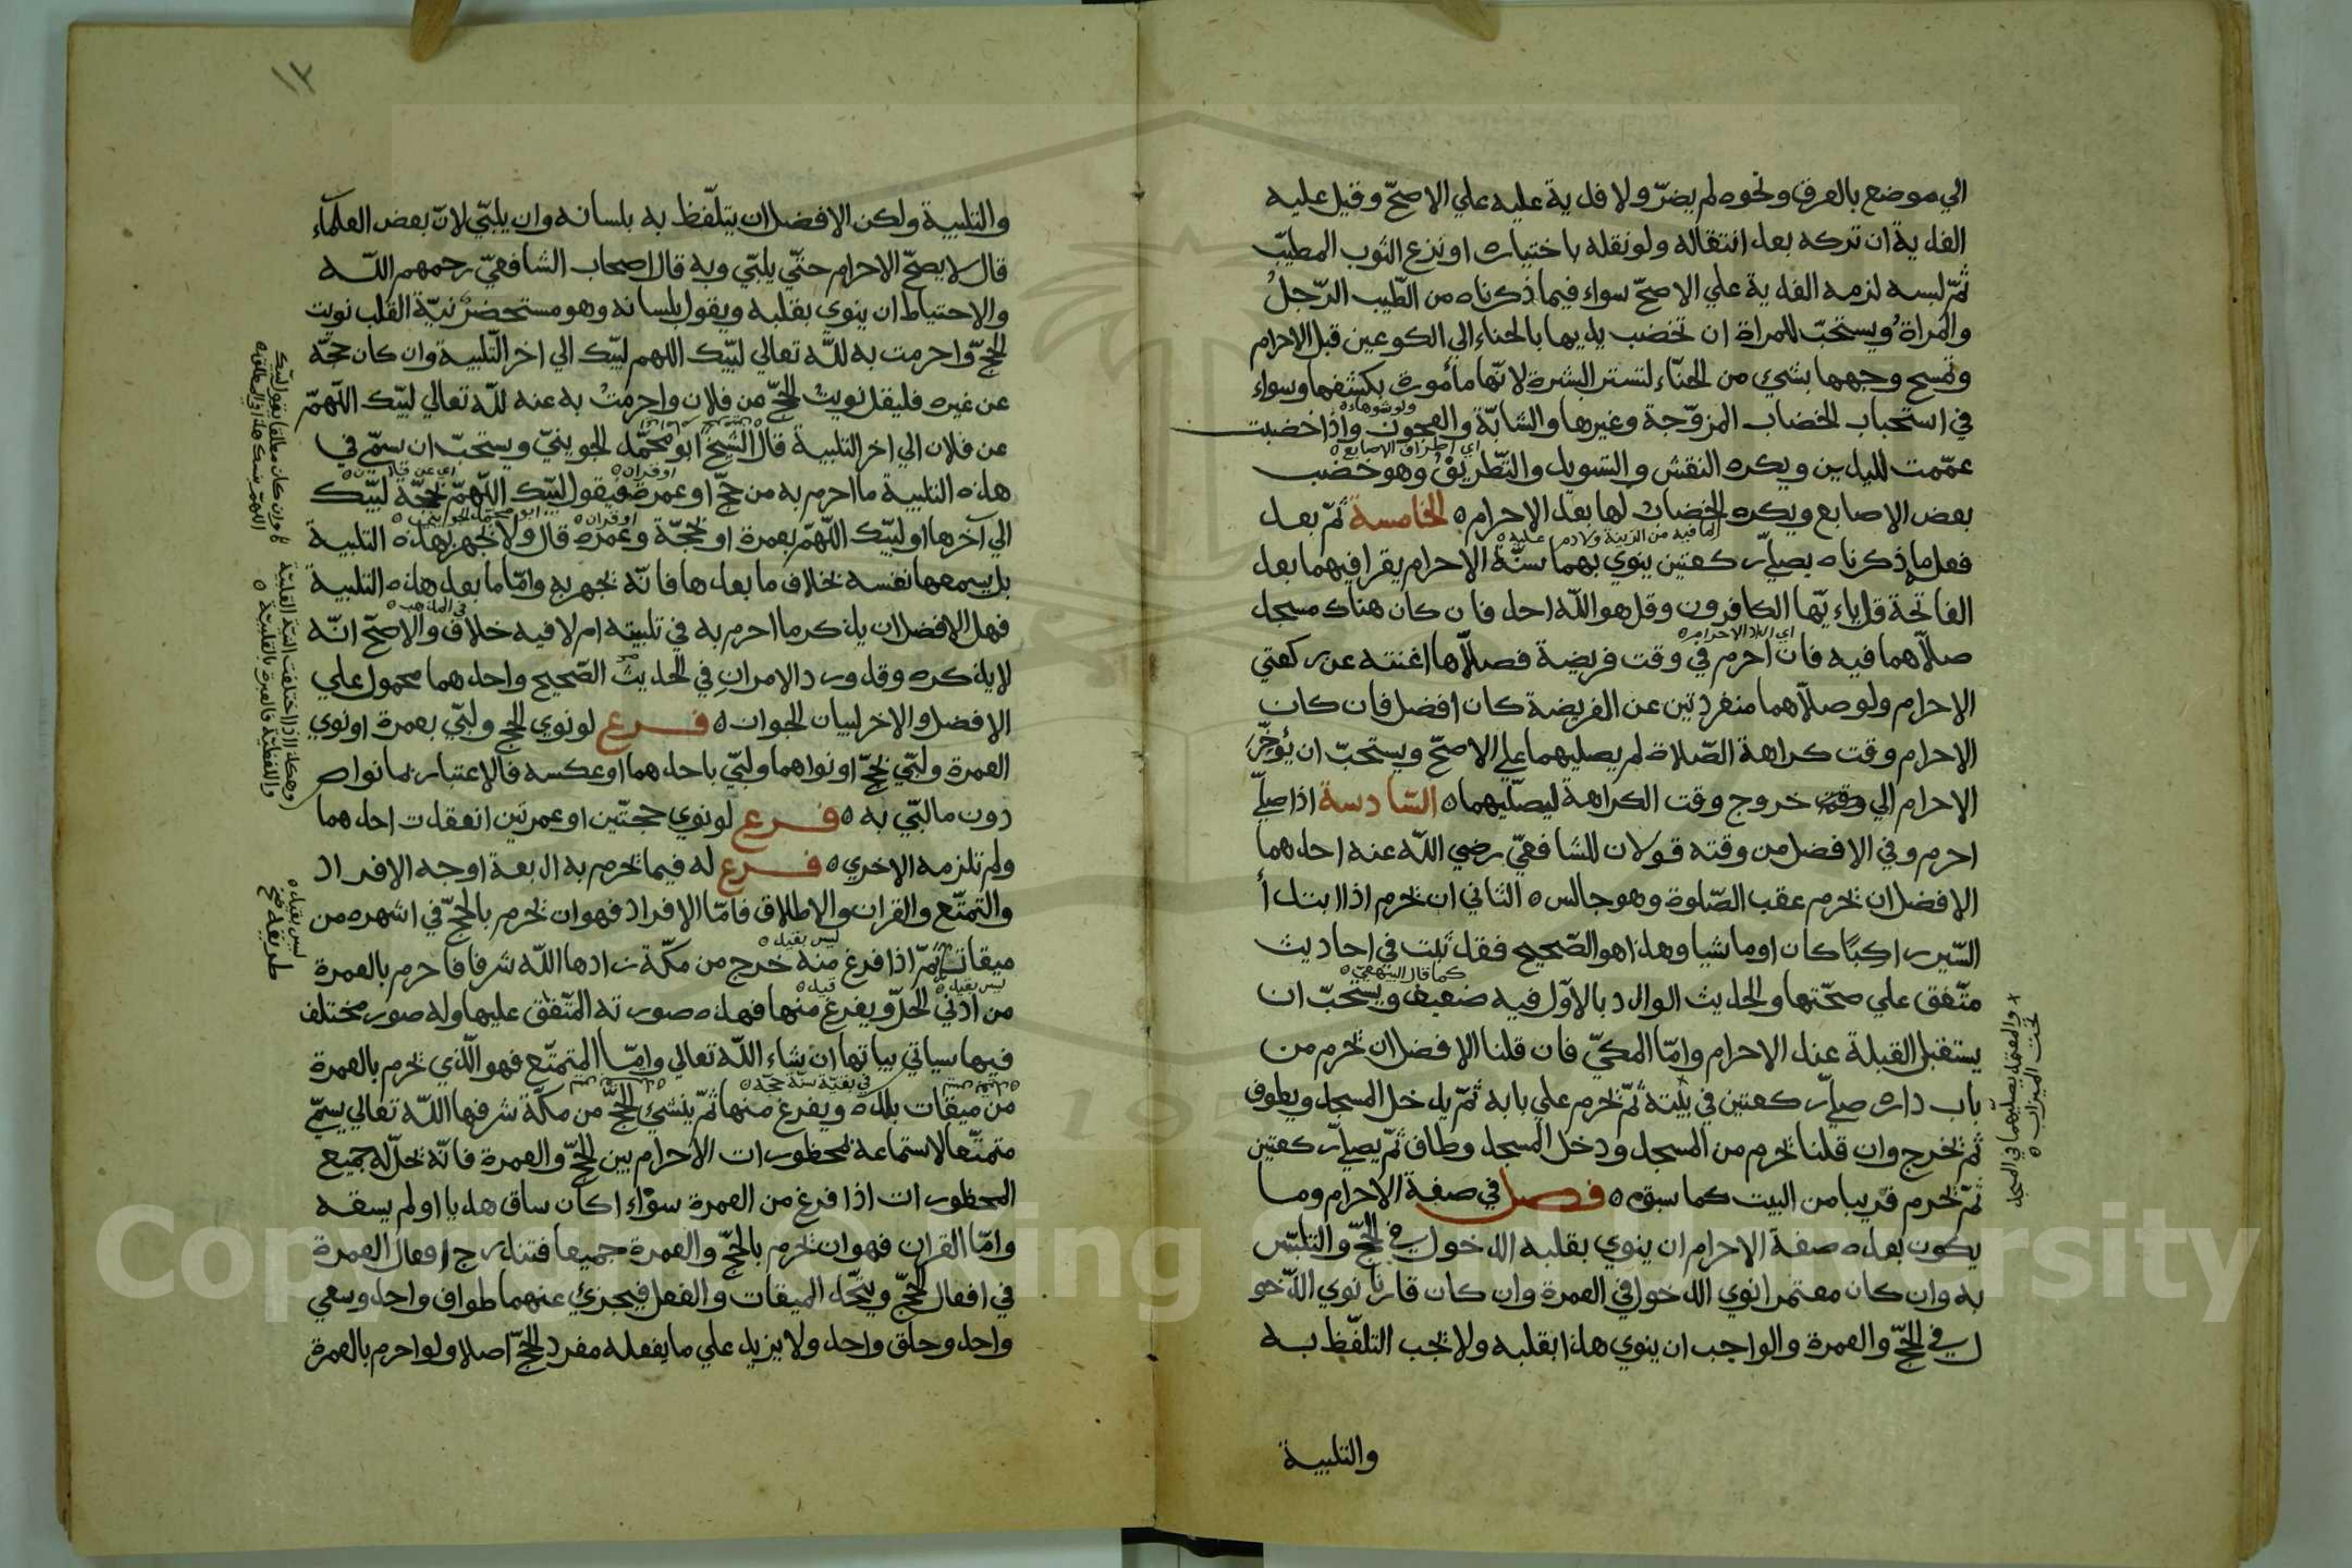 الي موضع بالعرق ونحوه لم يضرّ ولا فدية عليه علي الاصحّ وقيل عليه
الفدية ان تركه بعد انتقاله ولو نقله باختياره او نزع الثوب المطيّب
ثمّ لبسه لزمه الفدية علي الاصحّ سواء فيما ذكرناه من الطّيب الرّجلُ
والمراةُ ويستحبّ للمراة ان تخضب يديها بالحناء الي الكوعين قبل الاحرام
وتمسح وجهها بشيء من الحنّاء لتستر البشرة لانّها مأمورة بكشفها وسواء
في استحباب الخضاب المزوّجة وغيرها والشابّة والعجوز واذا خضبت
ولو شوهاء
عمّمت لليدين ويكره النقش والتسويد والتّطريف وهو خضب
اي اطراف الاصابع
بعض الاصابع ويكره الخضاب لها بعد الاحرام الخامسة ثمّ بعد
لما فيه من الزينة ولا دم عليه
فعل ما ذكرناه يصلّي ركعتين ينوي بهما سنّة الاحرام يقرا فيهما بعد
الفاتحة قل ياءيّها الكافرون وقل هو اللّه احد فان كان هناك مسجد
صلاّهما فيه فان احرم في وقت فريضة فصلاّها اغنته عن ركعتي
الاحرام ولو صلاّهما منفردتين عن الفريضة كان افضل فان كان
الاحرام وقت كراهة الصّلاة لم يصليهما علي الاصحّ ويستحبّ ان يُؤخّر
الاحرام الي وقت خروج وقت الكراهة ليصلّيهما السّادسة اذا صلّي
احرم وفي الافضل من وقته قولان للشافعيّ رضي اللّه عنه احدهما
الافضل ان يحرم عقب الصّلوة وهو جالس الثاني ان يحرم اذا ابتدأ
السّير راكبًا كان او ماشيا وهذا هو الصّحيح فقد ثبت في احاديث
متّفق علي صحّتها والحديث الوارد بالاوّل فيه ضعيف ويستحبّ ان
كما قال البيهقيّ
يستقبل القبلة عند الاحرام وامّا المكيّ فان قلنا الافضل ان يحرم من
باب داره صلّي ركعتين في بيته ثمّ يحرم علي بابه ثمّ يدخل المسجد ويطوف
ثمّ يخرج وان قلنا يحرم من المسجد ودخل المسجد وطاف ثمّ يصلّي ركعتين
ثمّ يحرم قريبا من البيت كما سبق فصل في صفة الاحرام وما
يكون بعده صفة الاحرام ان ينوي بقلبه الدخول في الحجّ والتلبّس
به وان كان معتمرا نوي الدخول في العمرة وان كان قارنا نوي الدّخو
ل في الحجّ والعمرة والواجب ان ينوي هذا بقلبه ولا يجب التلفّظ به
والتلبية
والمعتمد يصليهما في المسجد
تحت الميزاب
١٢
والتلبية ولكن الافضل ان يتلفّظ به بلسانه وان يلبّي لانّ بعض العلماء
قال لا يصحّ الاحرام حتّي يلبّي وبه قال اصحاب الشافعيّ رحمهم اللّه
والاحتياط ان ينوي بقلبه ويقول بلسانه وهو مستحضر نيّة القلب نويت
الحجّ واحرمت به للّه تعالي لبّيك اللهم لبّيك الي اخر التّلبية وان كان حجّه
عن غيره فليقل نويتُ الحجّ من فلان واحرمتُ به عنه للّه تعالي لبّيك اللّهمّ
عن فلان الي اخر التلبية قال الشّيخ ابو محمّد الجوينيّ ويستحبّ ان سمّي في
هذه التلبية ما احرم به من حجّ او عمرة فيقول لبّيك اللّهمّ بحجّة لبّيك
او قران
الي آخرها او لبّيك اللّهمّ بعمرة او بحجّة وعمرة قال ولا يجهر بهذه التلبية
او قران
ابو محمّد الجوينيّ
بل يسمعها نفسه بخلاف ما بعدها فانّه يجهر به وامّا ما بعد هذه التلبية
فهل الافضل ان يذكر ما احرم به في تلبيته ام لا فيه خلاف والاصحّ انّه
في المذهب
لا يذكره وقد ورد الامران في الحديث الصّحيح واحدهما محمول علي
الافضل والاخر لبيان الجواز فرع لو نوي الحج ولبّي بعمرة او نوي
العمرة ولبّي بحجّ او نواهما ولبّي باحدهما او عكسه فالاعتبار بما نواه
دون ما لبّي به فرع لو نوي حجتّين او عمرتين انعقدت احدهما
ولم تلزمه الاخري فرع له فيما يحرم به اربعة اوجه الافراد
والتمتّع والقران والاطلاق فامّا الافراد فهو ان يحرم بالحجّ في اشهره من
ميقاته ثمّ اذا فرغ منه خرج من مكّة زادها اللّه شرفا فاحرم بالعمرة
ليس بقيد
من ادني الحلّ ويفرغ منها فهذه صورته المتّفق عليها وله صور مختلف
ليس بقيد
قيد
فيها سياتي بيانها ان شاء اللّه تعالي وامّا المتمتّع فهو الّذي يحرم بالعمرة
من ميقات بلده ويفرغ منها ثمّ ينشيء الحجّ من مكّة شرفها اللّه تعالي يسمّي
في بقيّة سنة حجّه
متمتّعا لاستماعه بمحظورات الاحرام بين الحجّ والعمرة فانّه يحلّ له جميع
المحظورات اذا فرغ من العمرة سوٰاء اكان ساق هديا او لم يسقه
وامّا القران فهو ان يحرم بالحجّ والعمرة جميعا فتندرج افعال العمرة
في افعال الحجّ ويتّحد الميقات والفعل فيجزئ عنهما طواف واحد وسعي
واحد وحلق واحد ولا يزيد علي ما يفعله مفرد الحجّ اصلا ولو احرم بالعمرة
وان كان مطلقا يقول لبّيك
وهكذا اذا اختلفت النيّة القلبيّة
واللفظيّة فالعبرة بالقلبيّة
ليس بقيد